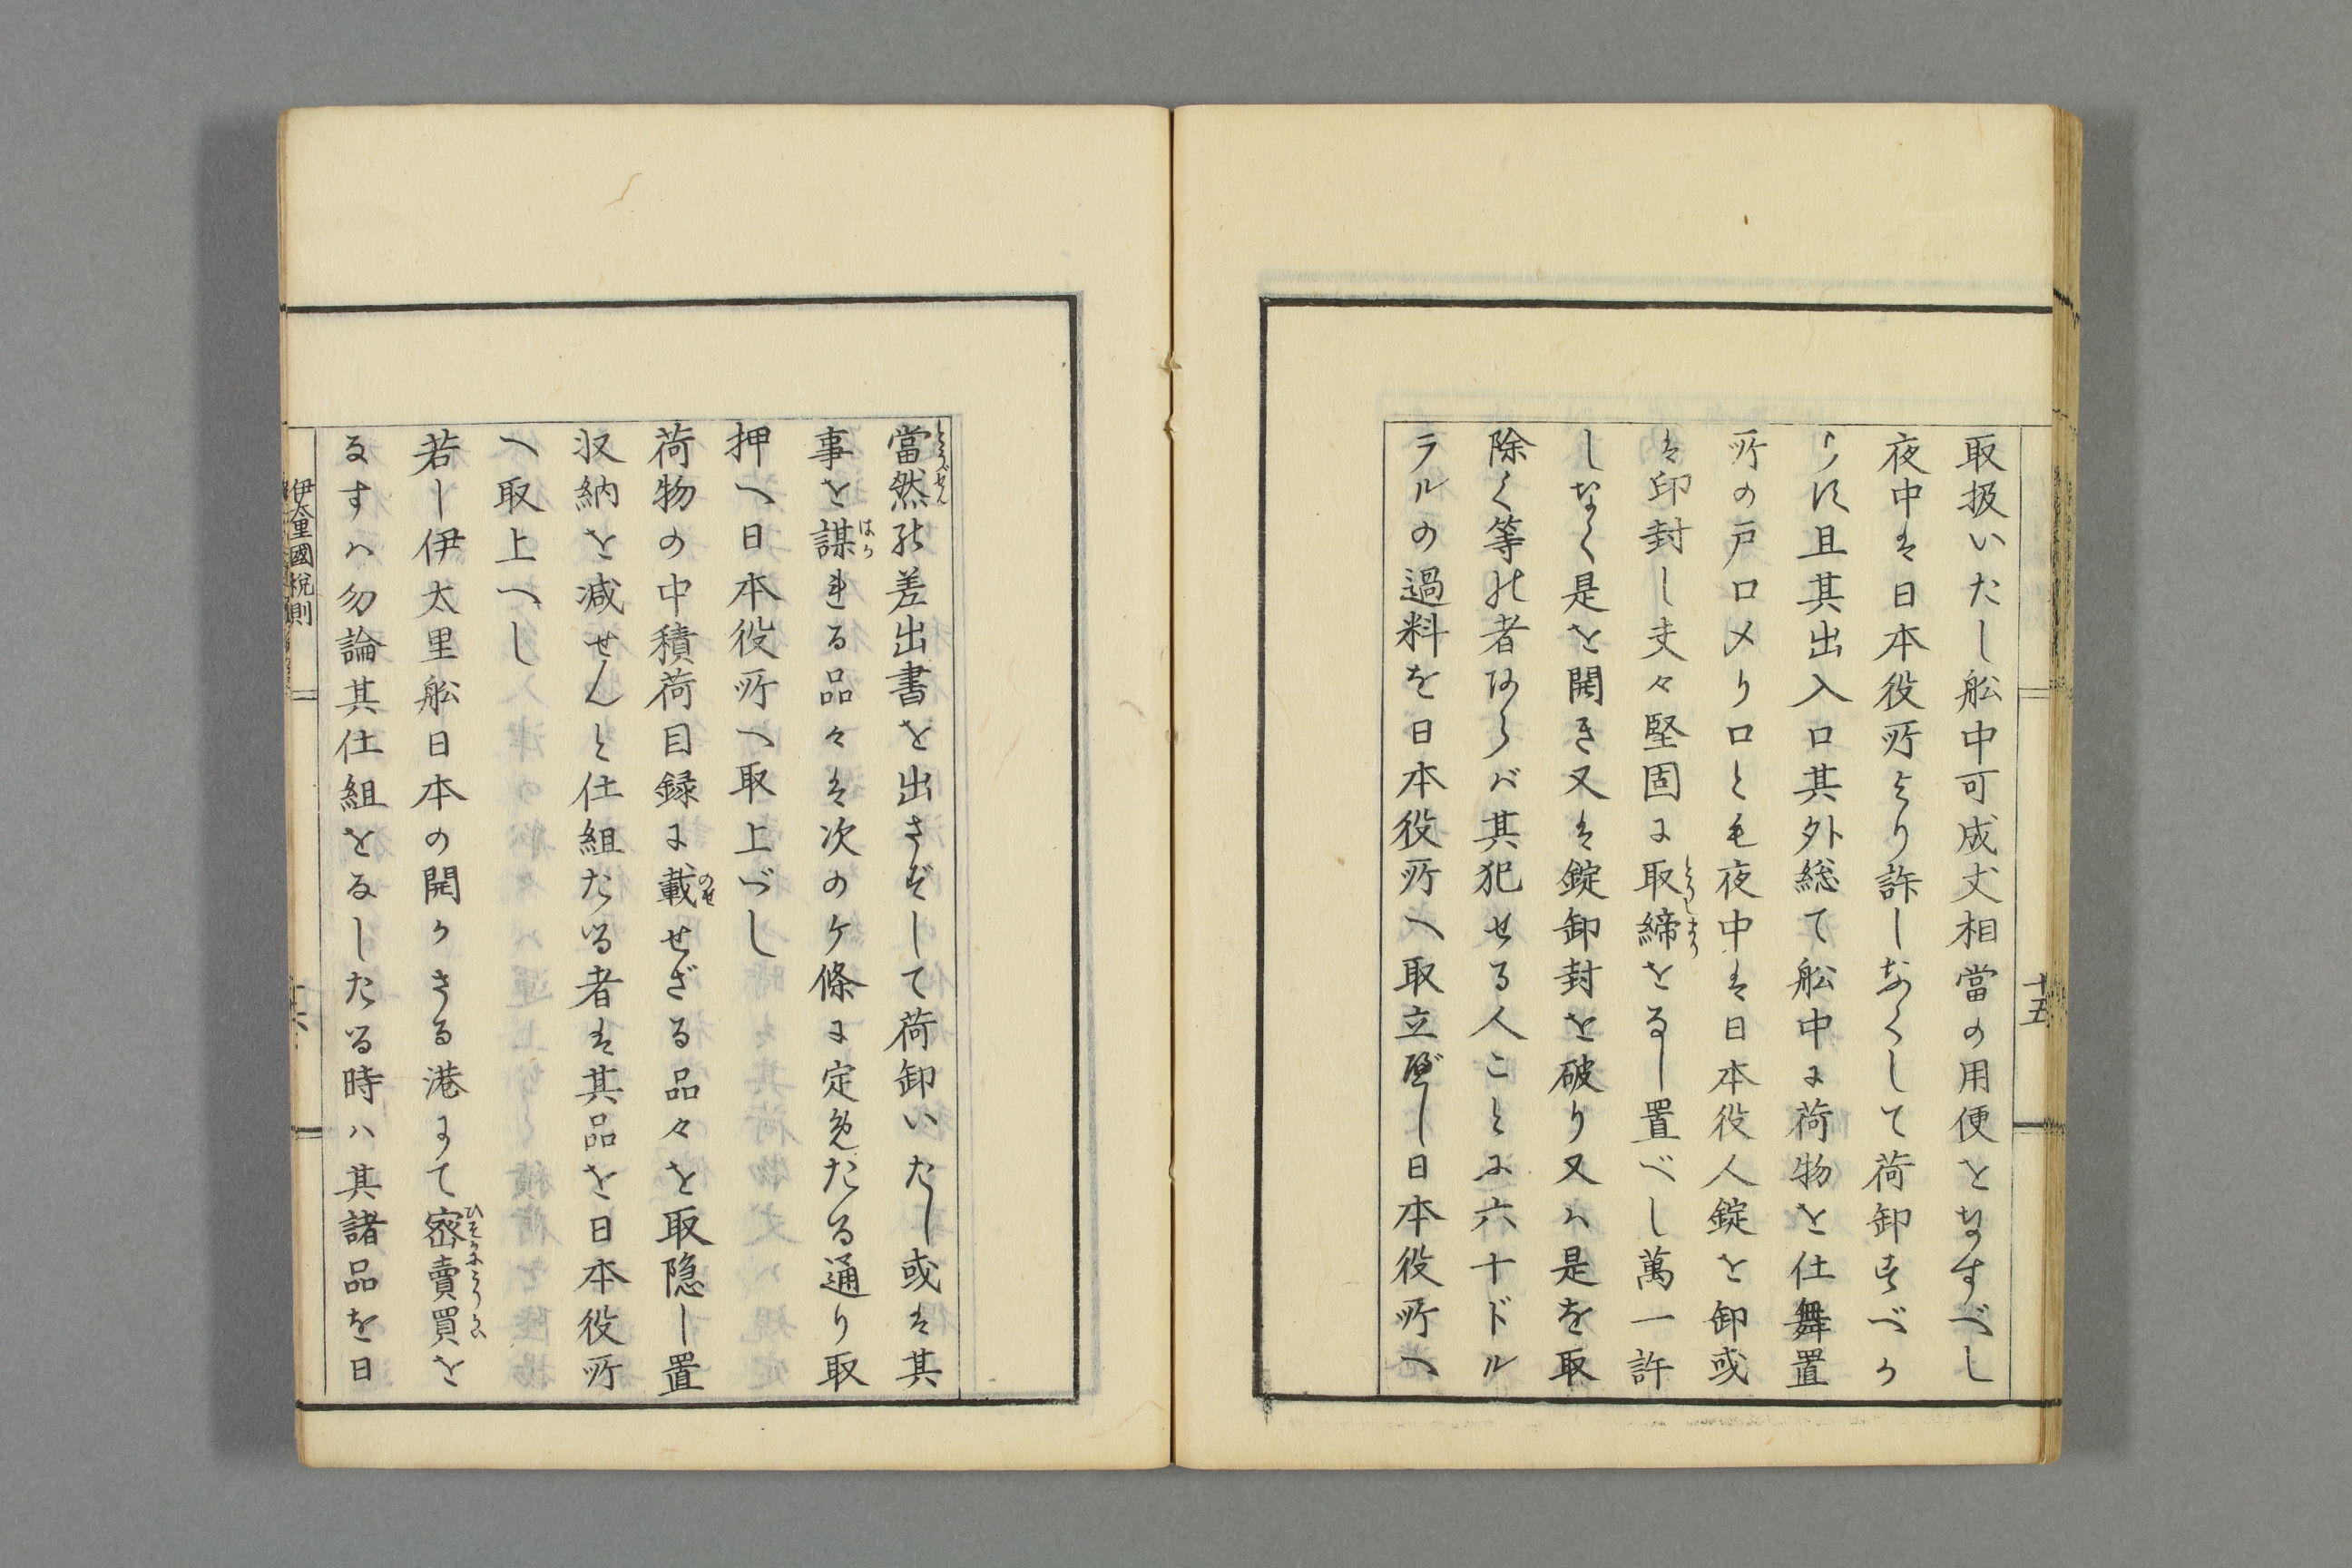 取扱いたし舩中可成丈相當の用便となすべし
夜中は日本役所より許しなくして荷卸すべか
らす且其出入口其外総て舩中に荷物を仕舞置
所の戸口〆り口とも夜中は日本役人錠を卸或
は印封し夫々堅固に取締をなし置べし萬一許
とりしまり
しなく是を開き又は錠卸封を破り又ハ是を取
除く等の者あらバ其犯せる人ことに六十ドル
ラルの過料を日本役所へ取立べし日本役所へ
十五
當然の差出書を出さずして荷卸いたし或は其
とうぜん
事を謀れる品々は次のケ條に定めたる通り取
はか
押へ日本役所へ取上べし
荷物の中積荷目録に載せざる品々を取隠し置
のせ
収納を減せんと仕組たる者は其品を日本役所
へ取上へし
若し伊太里舩日本の開かさる港にて密賣買を
ひそかにうりかい
なすハ勿論其仕組をなしたる時ハ其諸品を日
伊太里國税則
十六